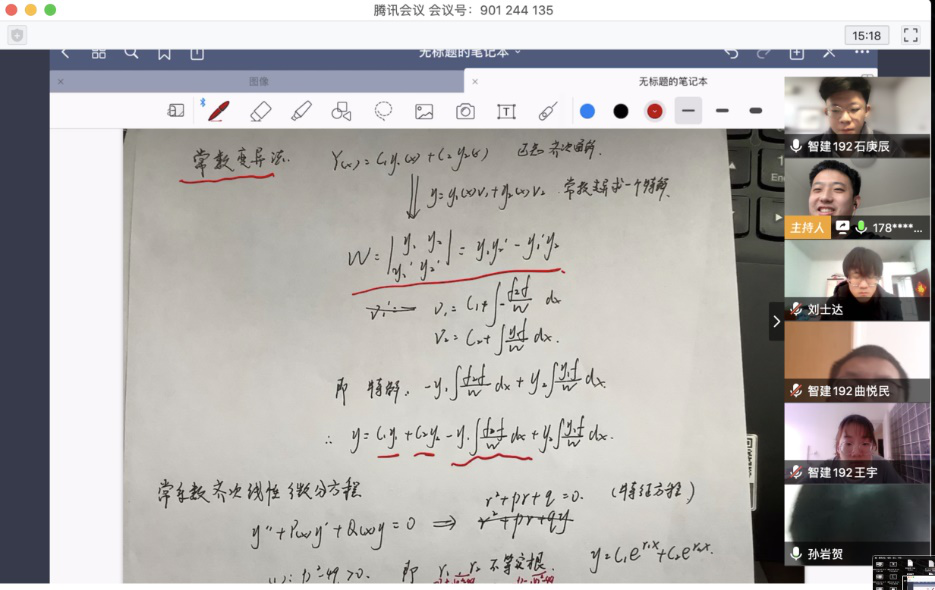 腾讯会议 会议号：901 244 135
15:18
无标题的笔记本
图像
无标题的笔记本
常数变异法. Y(x) = C₁y₁(x) + C₂y₂(x) 已知齐次通解.
y = y₁(x)v₁ + y₂(x)v₂ 常数变异求一个特解.
W = | y₁ y₂ | = y₁y₂' - y₁'y₂
y₁' y₂'
v₁ = C₁ + ∫ - y₂f/W dx
v₂ = C₂ + ∫ y₁f/W dx.
即 特解, -y₁∫ y₂f/W dx + y₂∫ y₁f/W dx.
∴ y = C₁y₁ + C₂y₂ - y₁∫ y₂f/W dx + y₂∫ y₁f/W dx.
常系数齐次线性微分方程
r² + pr + q = 0. (特征方程)
y'' + P(x)y' + Q(x)y = 0 ⇒ r² + pr + qy
p²-4q > 0. 即 r₁ r₂ 不等实根. y = C₁e^{r₁x} + C₂e^{r₂x}.
智建192石庚辰
主持人 178****...
刘士达
智建192曲悦民
智建192王宇
孙岩贺